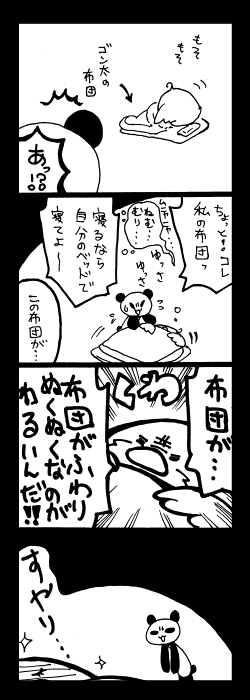 もそ
もそ
ゴン太の
布団
あっ!?
ちょっと!コレ
私の布団ッ
ムニャムニャ…
ねむ…
むり…
ゆっさ
ゆっさ
寝るなら
自分のベッドで
寝てよ〜
この布団が…
布団が…
くわっ
布団がふわり
ぬくぬくなのが
わるいんだ!!
すやり…